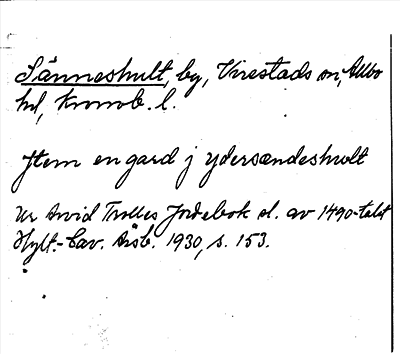 Sänneshult, by, Virestads sn, Allbo
hd, Kronob. l.
Jtem en gard j ydersændeshult
Ur Arvid Trolles Jordebok sl. av 1490-talet
Hylt.-Cav. Årsb. 1930, s. 153.